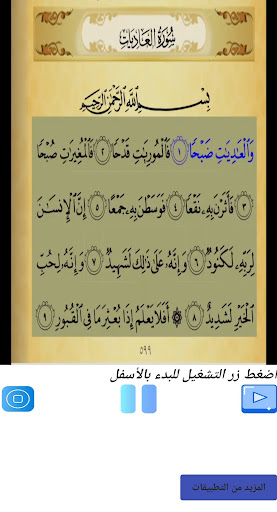 سُورَةُ الْعَادِيَاتِ
بِسْمِ اللَّهِ الرَّحْمَٰنِ الرَّحِيمِ
وَالْعَادِيَاتِ ضَبْحًا ١ فَالْمُورِيَاتِ قَدْحًا ٢ فَالْمُغِيرَاتِ صُبْحًا
٣ فَأَثَرْنَ بِهِ نَقْعًا ٤ فَوَسَطْنَ بِهِ جَمْعًا ٥ إِنَّ الْإِنسَانَ
لِرَبِّهِ لَكَنُودٌ ٦ وَإِنَّهُ عَلَىٰ ذَٰلِكَ لَشَهِيدٌ ٧ وَإِنَّهُ لِحُبِّ
الْخَيْرِ لَشَدِيدٌ ٨ ۞ أَفَلَا يَعْلَمُ إِذَا بُعْثِرَ مَا فِي الْقُبُورِ ٩
٥٩٩
اضغط زر التشغيل للبدء بالأسفل
المزيد من التطبيقات